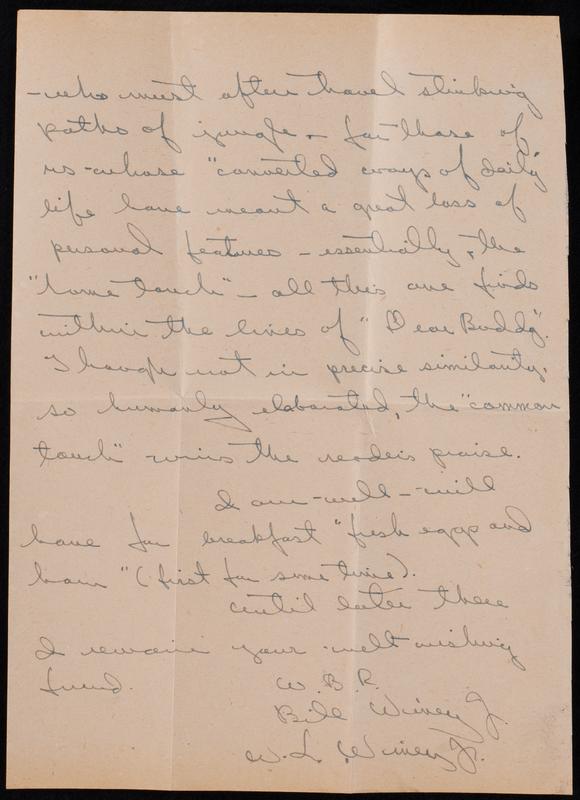 - who must often travel stinking
paths of jungle - for those of
us - whose "converted ways of daily"
life have meant a great loss of
personal features - essentially, the
"home touch" - all this one finds
within the lines of "Dear Buddy".
Though not in precise similarity,
so humanly elaborated, the "common
touch" wins the readers praise.
I am - well - will
have for breakfast "fresh eggs and
ham" (first for some time).
Until later then
I remain your - well wishing
friend.
W. B. R.
Bill Winey Jr.
W. L. Winey Jr.